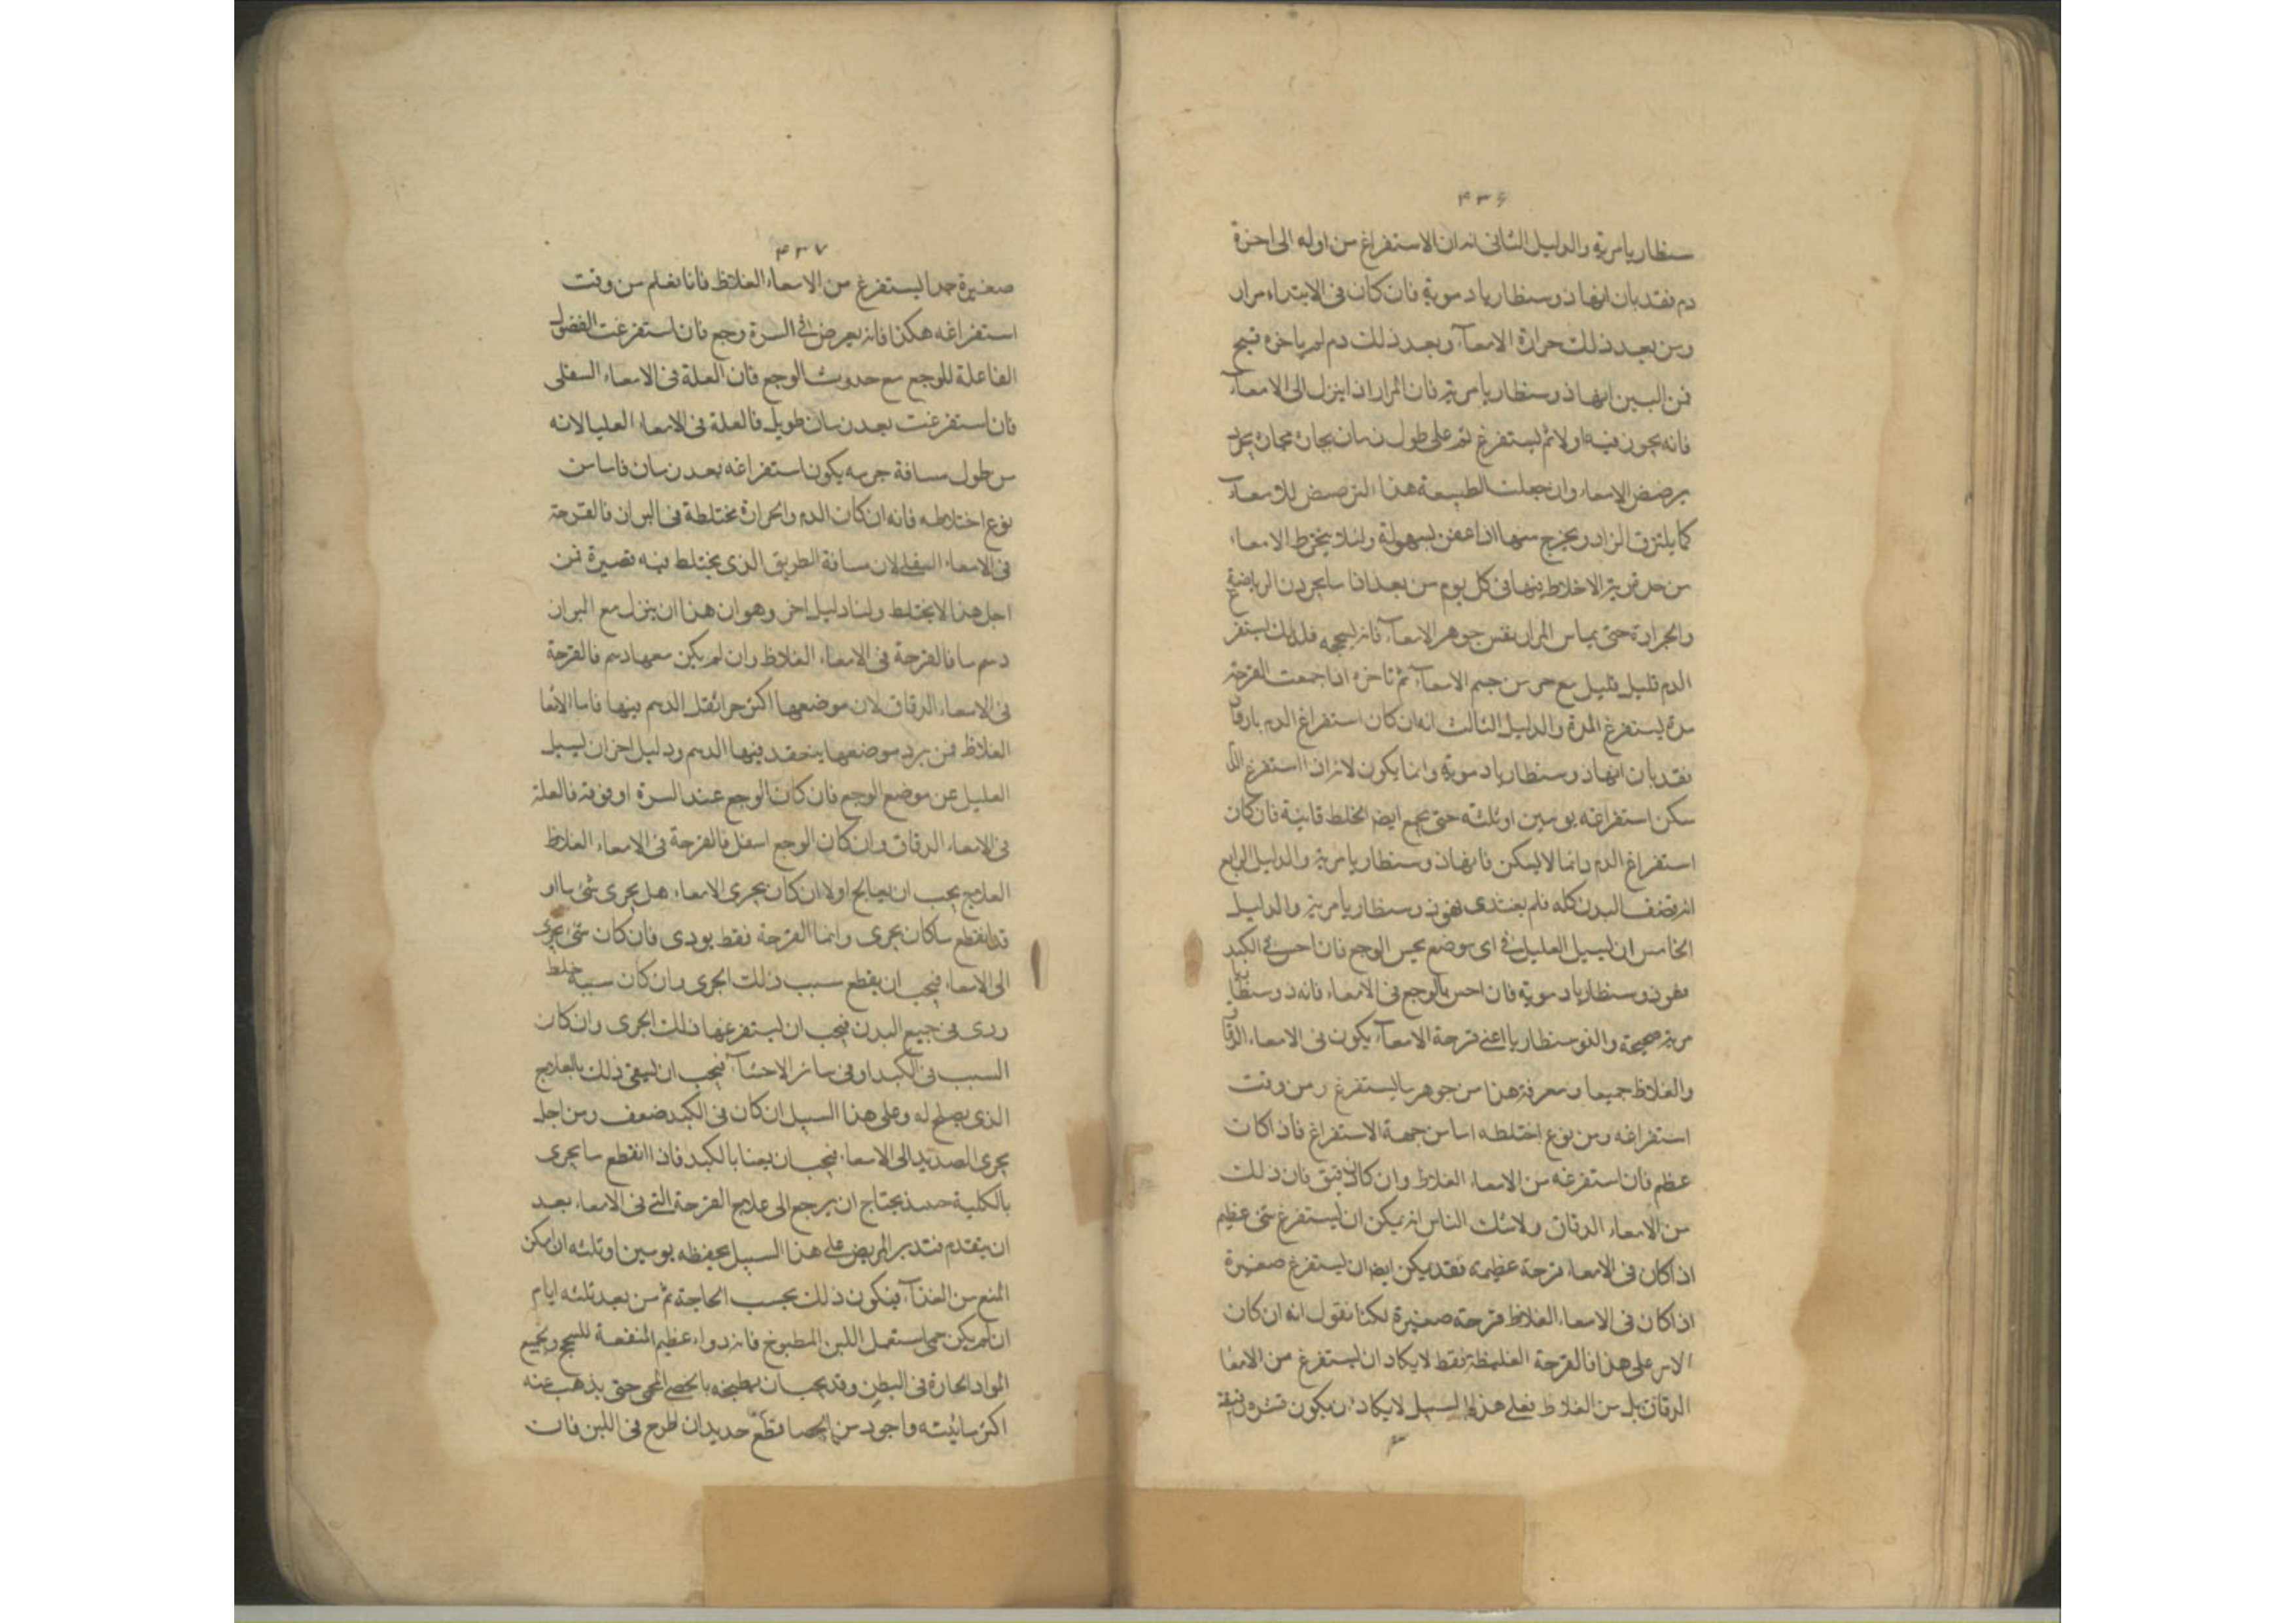 ۴۳۶
سنطاريا مرية والدليل الثانى انه ان الاستفراغ من اوله الى اخرة
دم فقد بان انها ذوسنطاريا دموية فان كان فى الابتداء مرار
ومن بعد ذلك حرارة الامعآء وبعد ذلك دم لم ياخره قيح
فمن البين انها ذوسنطاريا مرية فان المرار اذا ينزل الى الامعآء
فانه يجوز فيه اولا ثم يستفرغ ثم على طول زمان
يرضض الامعاء وان جعلت الطبيعة هذا الترصيص للامعآء
كما يلتزق الزاد ويخرج منها اذا عفن بسهولة ولئلا يخرط الامعاء
من الاخلاط فيها فى كل يوم من بعد اذا ما يجردن الرياضية
والحرارة حتى يماس المرار نفس جوهر الامعآء فانه يسحجه فلذلك يستفر
الدم قليل قليل مع حر من جسم الامعآء ثم تاخره اذا جمعت القرحة
مدة يستفرغ المدة والدليل الثالث انه ان كان استفراغ الدم بارقا
فقد بان انها ذوسنطاريا دموية وانما يكون لانه اذا استفرغ الد
سكن استفراغه يومين اوثلثه حتى يجمع ايضا الخلط ثانية فان كان
استفراغ الدم دائما لا يسكن فانها ذوسنطاريا مرية والدليل الرابع
انه قضف البدن كله فلم يغتذى فهى ذوسنطاريا مرية والدليل
الخامس ان يسيل العليل فى اى موضع يحس الوجع فان احس فى الكبد
فهى ذوسنطاريا دموية فان احس بالوجع فى الامعاء فانه ذوسنطا
مرية صحيحة والذوسنطاريا اعنى قرحة الامعآء يكون فى الامعاء الرقاق
والغلاظ جميعا ومعرفة هذا من جوهر ما يستفرغ ومن وقت
استفراغه ومن نوع اختلطه اما من جهة الاستفراغ فاذا كانت
عظم فان استفرغه من الامعاء الغلاظ وان كان دقيق فان ذلك
من الامعاء الدقاق ولاشك الناس انه يمكن ان يستفرغ شى عظيم
اذا كان فى الامعاء قرحة عظيمة فقد يمكن ايضا ان يستفرغ صغيرة
اذا كان فى الامعاء الغلاظ قرحة صغيرة لكنا نقول انه ان كان
الامر على هذا فالقرحة الغليظة فقط لا يكاد ان يستفرغ من الامعا
الرقاق بل من الغلاظ فعلى هذا السبيل لا يكاد ان يكون قشور دقيقة
۴۳۷
صغيرة جدا يستفرغ من الامعاء الغلاظ فانا نعلم من وقت
استفراغه هكذا فانه يعرض فى السرة وجع فان استفرغت الفضول
الفاعلة للوجع مع حدوث الوجع فان العلة فى الامعاء السفلى
فان استفرغت بعد زمان طويل فالعلة فى الامعاء العليا لانه
من طول مسافة جريه يكون استفراغه بعد زمان فاما من
نوع اختلاطه فانه ان كان الدم والحرارة مختلطة فى البراز فالقرحة
فى الامعاء السفلى لان مسافة الطريق الذى يختلط فيه قصيرة فمن
اجل هذا لا يختلط ولنا دليل اخر وهو ان هذا ان ينزل مع البراز
دسم ما فالقرحة فى الامعاء الغلاظ وان لم يكن معها دسم فالقرحة
فى الامعاء الرقاق لان موضعها اكثر حرا الدسم فيها فاما الامعا
الغلاظ فمن برد موضعها ينعقد فيها الدسم ودليل اخر ان يسيل
العليل عن موضع الوجع فان كان الوجع عند السرة او فوقه فالعلة
فى الامعاء الدقاق وان كان الوجع اسفل فالقرحة فى الامعاء الغلاظ
العلاج يجب ان يعالج اولا ان كان يجرى الامعاء هل يجرى شئ ما او
قد انقطع ما كان يجرى وانما القرحة فقط يودى فان كان شئ يجرى
الى الامعاء فيجب ان يقطع سبب ذلك الجرى وان كان سببه خلط
ردى فى جميع البدن فيجب ان يستفرغها ذلك الجرى وان كان
السبب فى الكبد او فى سائر الاحشآء فيجب ان يسقى ذلك بالعلاج
الذى يصلح له وعلى هذا السبيل ان كان فى الكبد ضعف ومن اجل
يجرى الصديد الى الامعاء فيجب ان يعنا بالكبد فاذا انقطع ما يجرى
بالكلية يحتاج ان يرجع الى علاج القرحة التى فى الامعاء بعد
ان يتقدم فتدبر المريض على هذا السبيل بحفظه يومين اوثلثه ان امكن
المنع من الغذآء فيكون ذلك بحسب الحاجة ثم من بعد ثلثه ايام
ان لم يكن حمى استعمل اللبن المطبوخ فانه دواء عظيم المنفعة للسحج ولجميع
المواد الحارة فى البطن وقد يجب ان يطبخه بالحصى المحمى حتى يذهب عنه
اكثر مائيته واجود من الحصا قطع حديد ان طرح فى اللبن فان